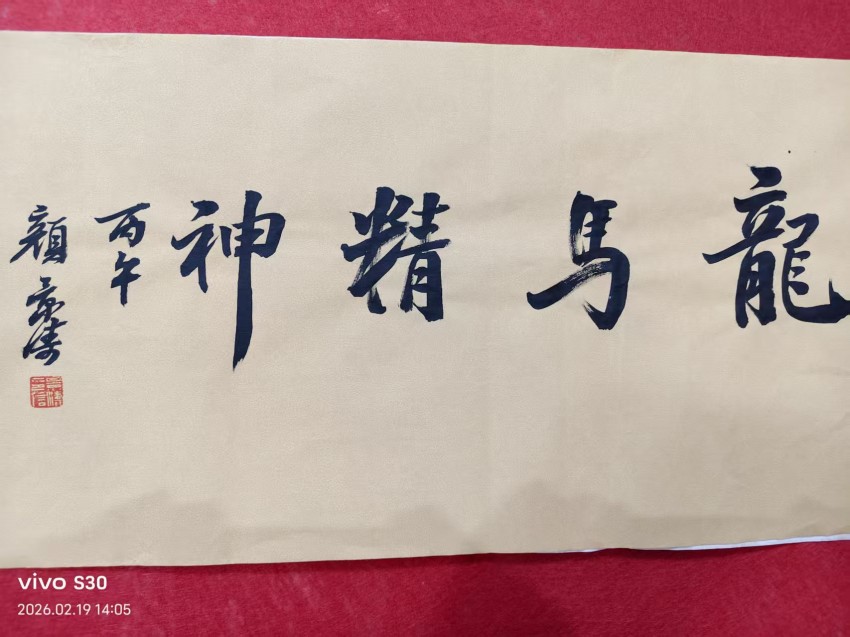 龍馬精神
丙午
顏景濤
vivo S30
2026.02.19 14:05